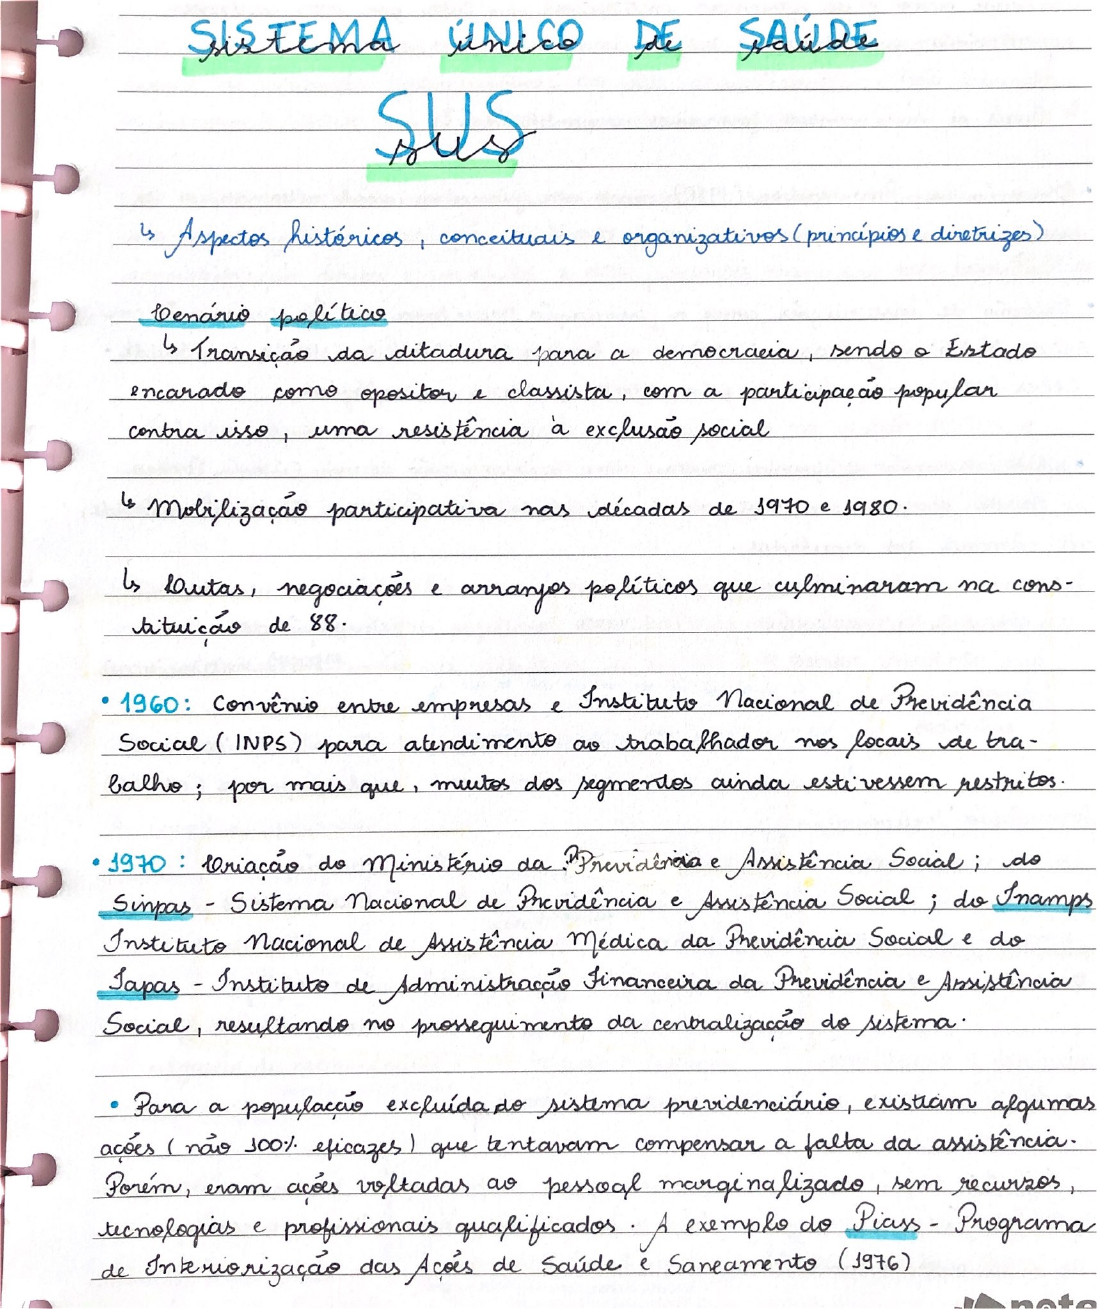 SISTEMA ÚNICO DE SAÚDE
sistema único de saúde
SUS
sus
↳ Aspectos históricos, conceituais e organizativos (princípios e diretrizes)
Cenário político
↳ Transição da ditadura para a democracia, sendo o Estado
encarado como opositor e classista, com a participação popular
contra isso, uma resistência à exclusão social
↳ Mobilização participativa nas décadas de 1970 e 1980.
↳ Lutas, negociações e arranjos políticos que culminaram na cons-
tituição de 88.
• 1960: Convênio entre empresas e Instituto Nacional de Previdência
Social (INPS) para atendimento ao trabalhador nos locais de tra-
balho; por mais que, muitos dos segmentos ainda estivessem restritos.
• 1970: Criação do Ministério da Previdência e Assistência Social; do
Sinpas - Sistema Nacional de Previdência e Assistência Social; do Inamps
Instituto Nacional de Assistência Médica da Previdência Social e do
Iapas - Instituto de Administração Financeira da Previdência e Assistência
Social, resultando no prosseguimento da centralização do sistema.
• Para a população excluída do sistema previdenciário, existiam algumas
ações (não 100% eficazes) que tentavam compensar a falta da assistência.
Porém, eram ações voltadas ao pessoal marginalizado, sem recursos,
tecnologias e profissionais qualificados. A exemplo do Piass - Programa
de Interiorização das Ações de Saúde e Saneamento (1976)